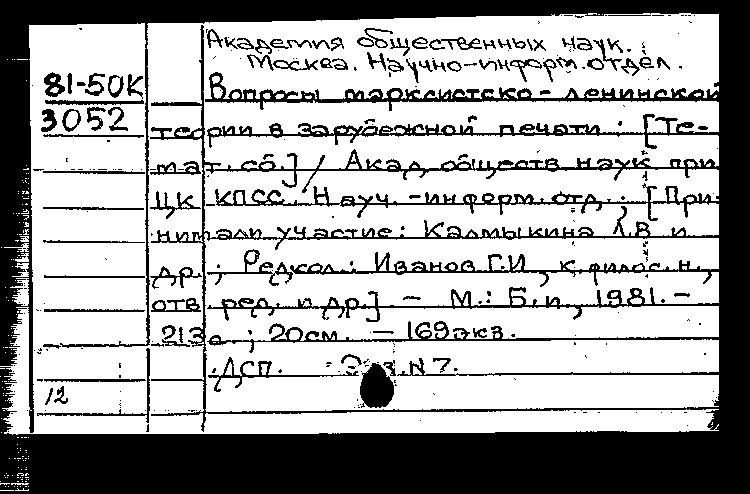 Академия общественных наук.
Москва. Научно-информ. отдел.
81-50К
3052
Вопросы марксистско-ленинской
теории в зарубежной печати: [Те-
мат. сб.] / Акад. обществ. наук при
ЦК КПСС. Науч.-информ. отд.; [При-
нимали участие: Калмыкина Л.В. и
др.; Редкол.: Иванов Г.И., к. филос. н.,
отв. ред. и др.] - М.: Б.и., 1981. -
213 с; 20см. - 169 экз.
ДСП. Экз. N 7.
12